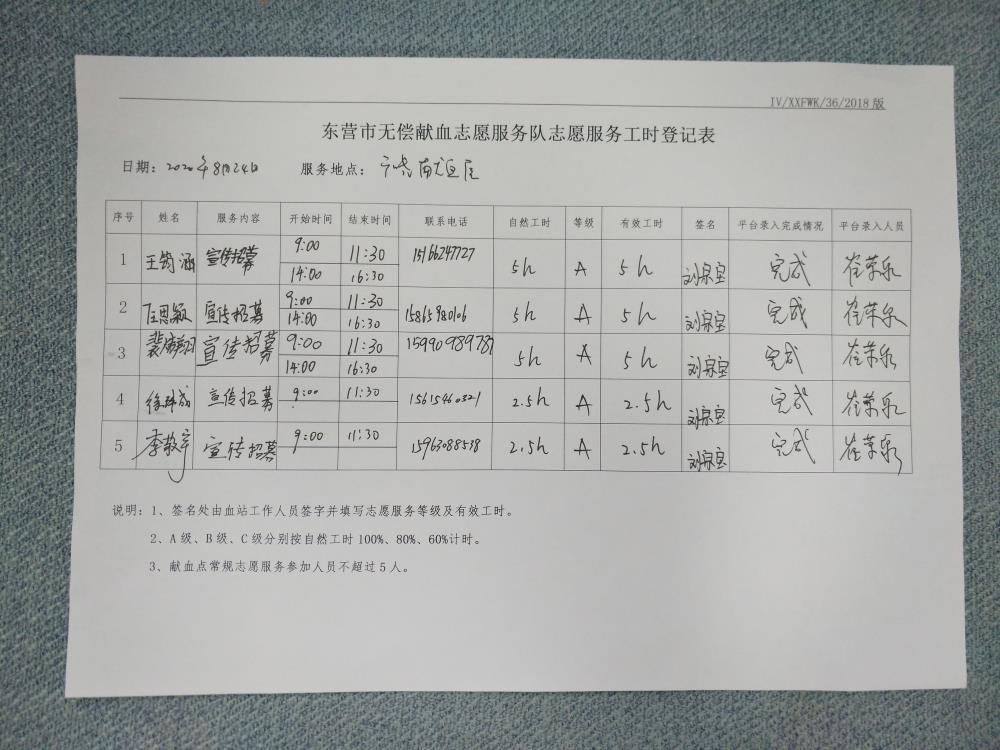 IV/XXFWK/36/2018 版
东营市无偿献血志愿服务队志愿服务工时登记表
日期: 2020年8月24日 服务地点:
序号 姓名 服务内容 开始时间 结束时间 联系电话 自然工时 等级 有效工时 签名 平台录入完成情况 平台录入人员
1 王筠涵 宣传招募 9:00 11:30 15166247727 5h A 5h 完成
14:00 16:30
2 宣传招募 9:00 11:30 15865980106 5h A 5h 完成
14:00 16:30
3 宣传招募 9:00 11:30 15990989787 5h A 5h 完成
14:00 16:30
4 宣传招募 9:00 11:30 15615460321 2.5h A 2.5h 完成
5 李敬宇 宣传招募 9:00 11:30 15963088538 2.5h A 2.5h 完成
说明: 1、签名处由血站工作人员签字并填写志愿服务等级及有效工时。
2、A 级、B 级、C 级分别按自然工时 100%、80%、60%计时。
3、献血点常规志愿服务参加人员不超过 5 人。